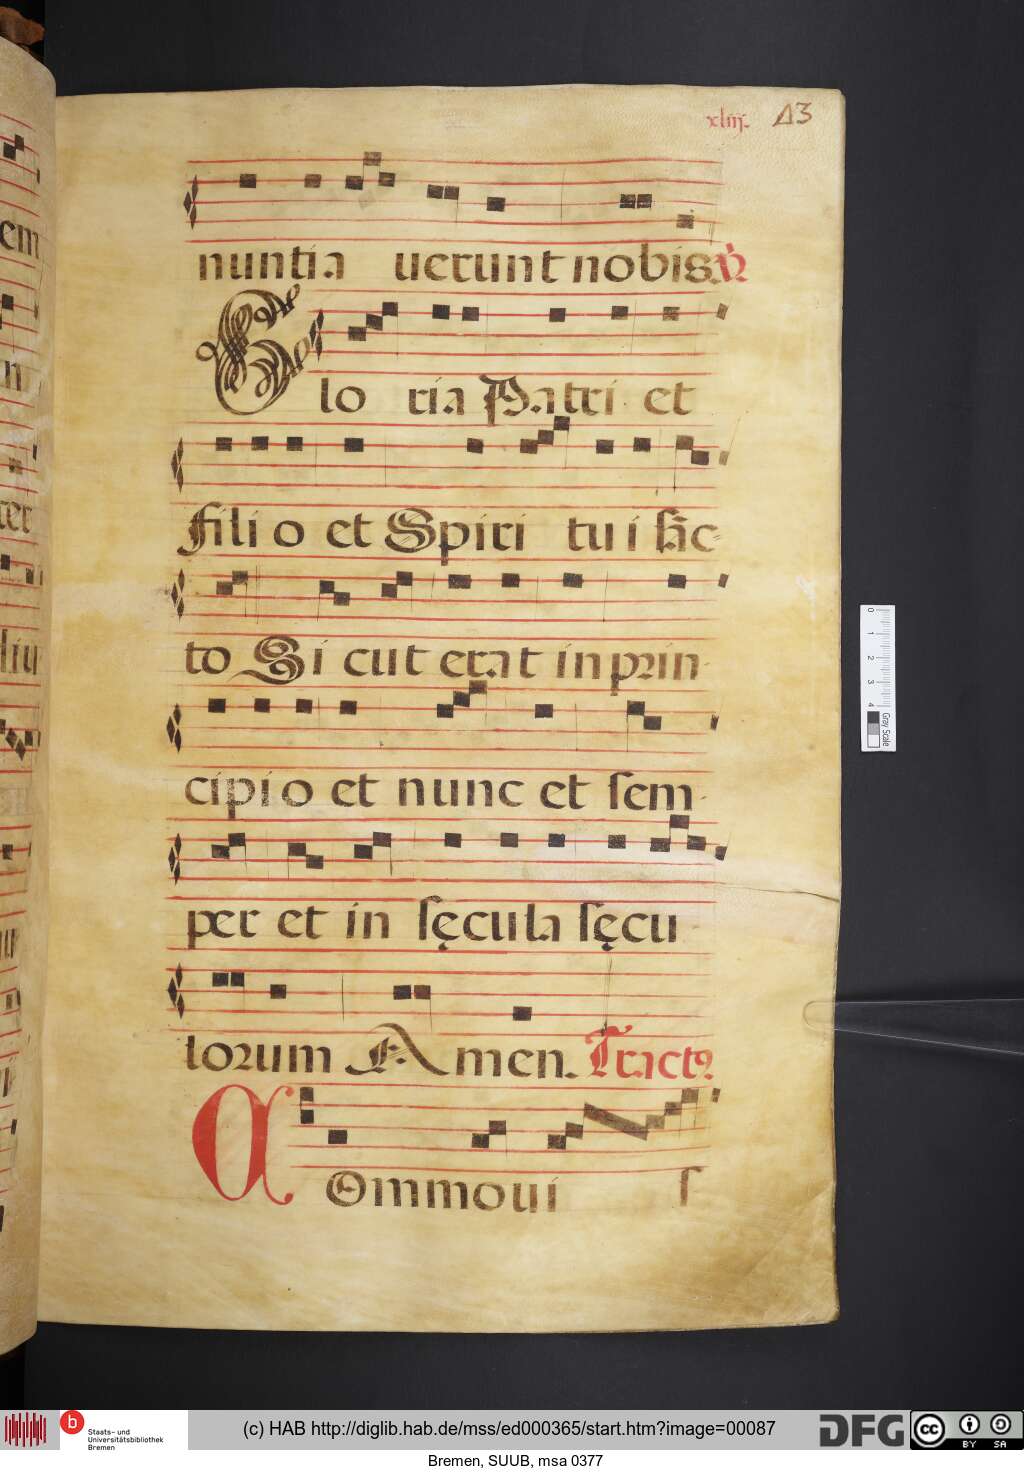 xliij. 43
nuntia uerunt nobis. ℣
Glo ria Patri et
Fili o et Spiri tu i sãc-
to Si cut erat in prin-
cipi o et nunc et sem-
per et in sęcula sęcu
lorum Amen. Tractꝰ
Commoui s
0 1 2 3 4
Gray Scale
b Staats- und
Universitätsbibliothek
Bremen
(c) HAB http://diglib.hab.de/mss/ed000365/start.htm?image=00087
DFG
cc BY SA
Bremen, SUUB, msa 0377